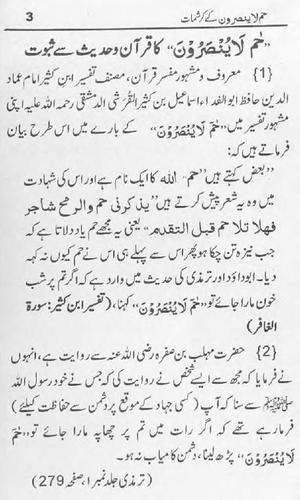 حم لاینصرون کے کرشمات 3
”حٰمٓ لَا یُنْصَرُوْنَ“ کا قرآن و حدیث سے ثبوت
{1} معروف و مشہور مفسر قرآن، مصنف تفسیر ابن کثیر امام عماد
الدین حافظ ابوالفداء اسماعیل بن کثیر القرشی الدمشقی رحمۃ اللہ علیہ اپنی
مشہور تفسیر میں ”حٰمٓ لَا یُنْصَرُوْنَ“ کے بارے میں اس طرح بیان
فرماتے ہیں کہ:
”بعض کہتے ہیں ”حم“ اللہ کا ایک نام ہے اور اس کی شہادت
میں وہ یہ شعر پیش کرتے ہیں ”یذکرنی حم والرمح شاجر
فھلا تلا حم قبل التقدم“ یعنی یہ مجھے حم یاد دلاتا ہے کہ
جب نیزہ تن چکا ہو پھر اس سے پہلے ہی اس نے حم کیوں نہ کہہ
دیا۔ ابوداؤد اور ترمذی کی حدیث میں وارد ہے کہ اگر تم پر شب
خون مارا جائے تو ”حٰمٓ لَا یُنْصَرُوْنَ“ کہنا، (تفسیر ابن کثیر: سورۃ
الغافر)
{2} حضرت مہلب بن صفرہ رضی اللہ عنہ سے روایت ہے، انہوں
نے فرمایا کہ مجھ سے ایسے شخص نے روایت کی کہ جس نے خود رسول اللہ
ﷺ سے سنا کہ آپ (کسی جہاد کے موقع پر دشمن سے حفاظت کیلئے)
فرما رہے تھے کہ اگر رات میں تم پر چھاپہ مارا جائے تو ”حٰمٓ
لَا یُنْصَرُوْنَ“ پڑھ لینا، دشمن کامیاب نہ ہو۔
(ترمذی جلد نمبر ۱، صفحہ 279)